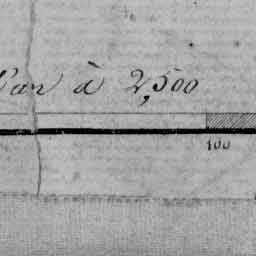 à 2,500
100